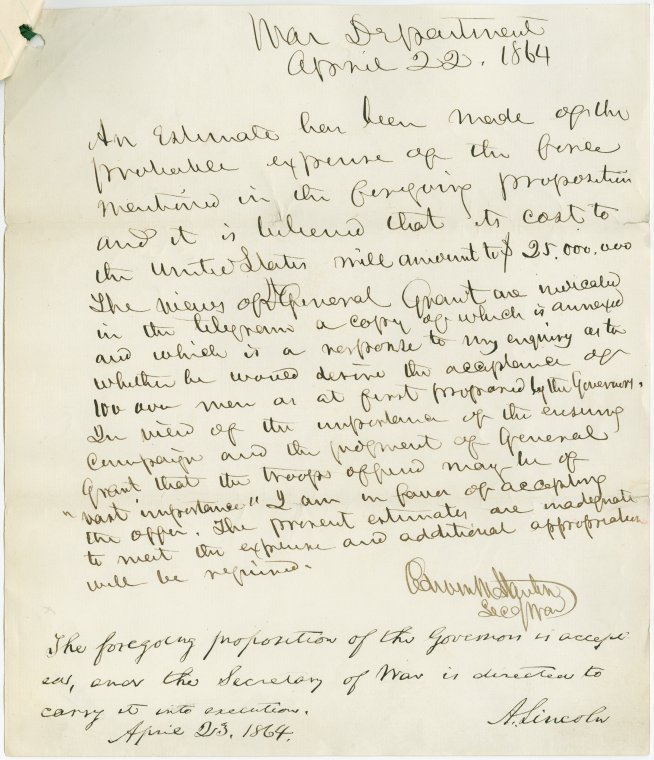 War Department
April 22. 1864
An Estimate has been made of the
probable expense of the force
mentioned in the foregoing proposition
and it is believed that its cost to
the United States will amount to $ 25.000.000
The views of Lt General Grant are indicated
in the telegram a copy of which is annexed
and which is a response to my enquiry as to
whether he would desire the acceptance of
100 000 men as at first proposed by the Governors.
In view of the importance of the ensuing
campaign and the judgment of General
Grant that the troops offered may be of
"vast importance" I am in favor of accepting
the offer. The present estimates are inadequate
to meet the expense and additional appropriation
will be required.
Edwin M Stanton
Sec of War
The foregoing proposition of the Governors is accept-
ed, and the Secretary of War is directed to
carry it into execution.
A. Lincoln
April 23. 1864.